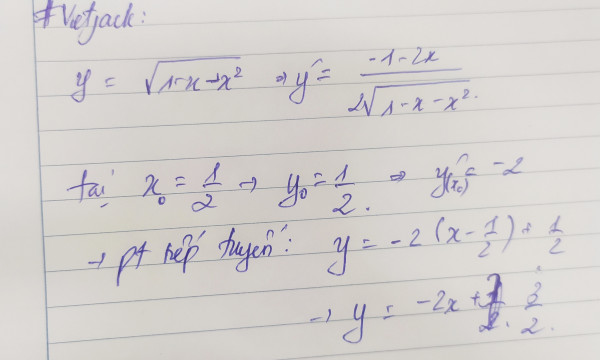 #Vietjack:
y = √(1-x-x²) → y' = (-1-2x)/(2√(1-x-x²)).
tại x₀ = 1/2 → y₀ = 1/2. → y'(x₀) = -2
→ pt tiếp tuyến: y = -2(x - 1/2) + 1/2
→ y = -2x + 3/2.